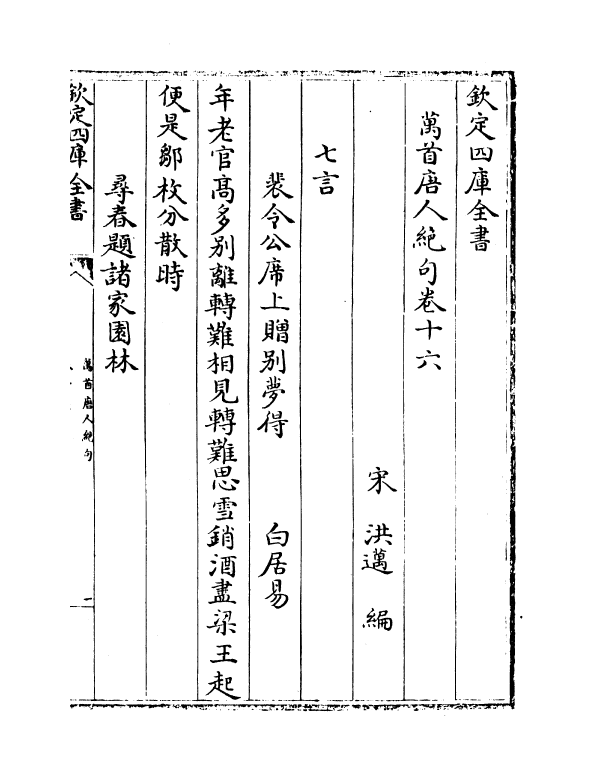 欽定四庫全書
萬首唐人絶句卷十六
宋 洪邁 編
七言
裴令公席上贈别夢得 白居易
年老官髙多别離轉難相見轉難思雪銷酒盡梁王起
便是鄒枚分散時
尋春題諸家園林
欽定四庫全書
萬首唐人絶句
一